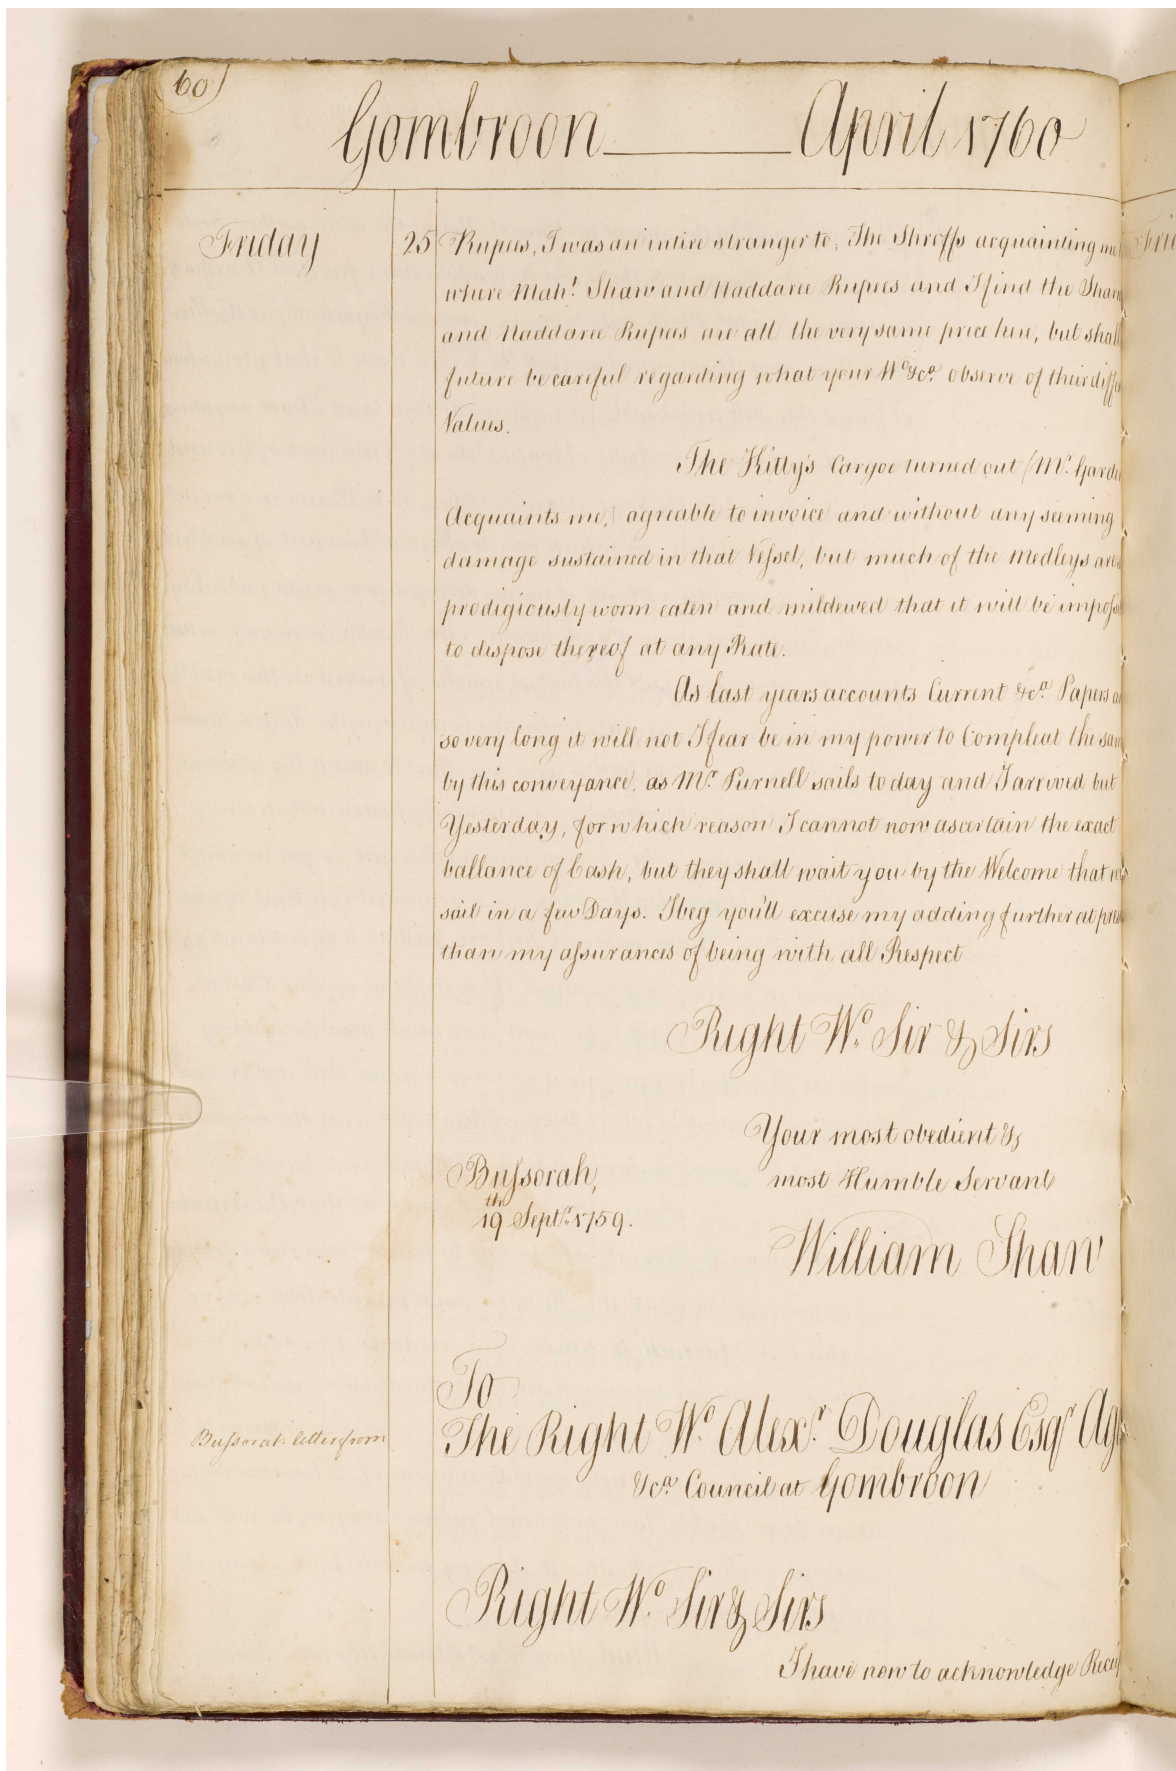 60
Gombroon April 1760
Friday 25 Rupees, I was an intire stranger to, The Shroffs acquainting me
where Mah.t Shaw and Naddaree Rupees and I find the Shaw
and Naddaree Rupees are all the very same price here, but shall
future be careful regarding what your W.o &c.a observe of their diff
Values.
The Kitty's Cargoe turned out (M.r Garde
Acquaints me,) agreable to invoice and without any seeming
damage sustained in that Vessel, but much of the Medleys are
prodigiously worm eaten and mildewed that it will be imposs
to dispose thereof at any Rate.
As last years accounts Current &c.a Papers a
so very long it will not I fear be in my power to Compleat the sam
by this conveyance, as M.r Purnell sails to day and I arrived but
Yesterday, for which reason I cannot now ascertain the exact
ballance of Cash, but they shall wait you by the Welcome that
sail in a few Days. I beg you'll excuse my adding further at pres
than my assurances of being with all Respect
Right W.o Sir & Sirs
Your most obedient &
Bussorah, most Humble Servant
19th Sept.r 1759.
William Shaw
To
Bussorah letter from The Right W.o Alex.r Douglas Esq.r Ag
&c.a Council at Gombroon
Right W.o Sir & Sirs
I have now to acknowledge Recei
Frid